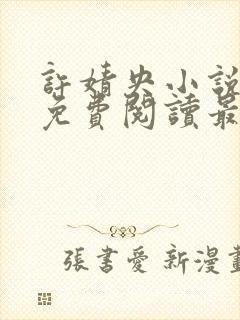 許婧央小說
免費閱讀最
張書愛 新漫畫